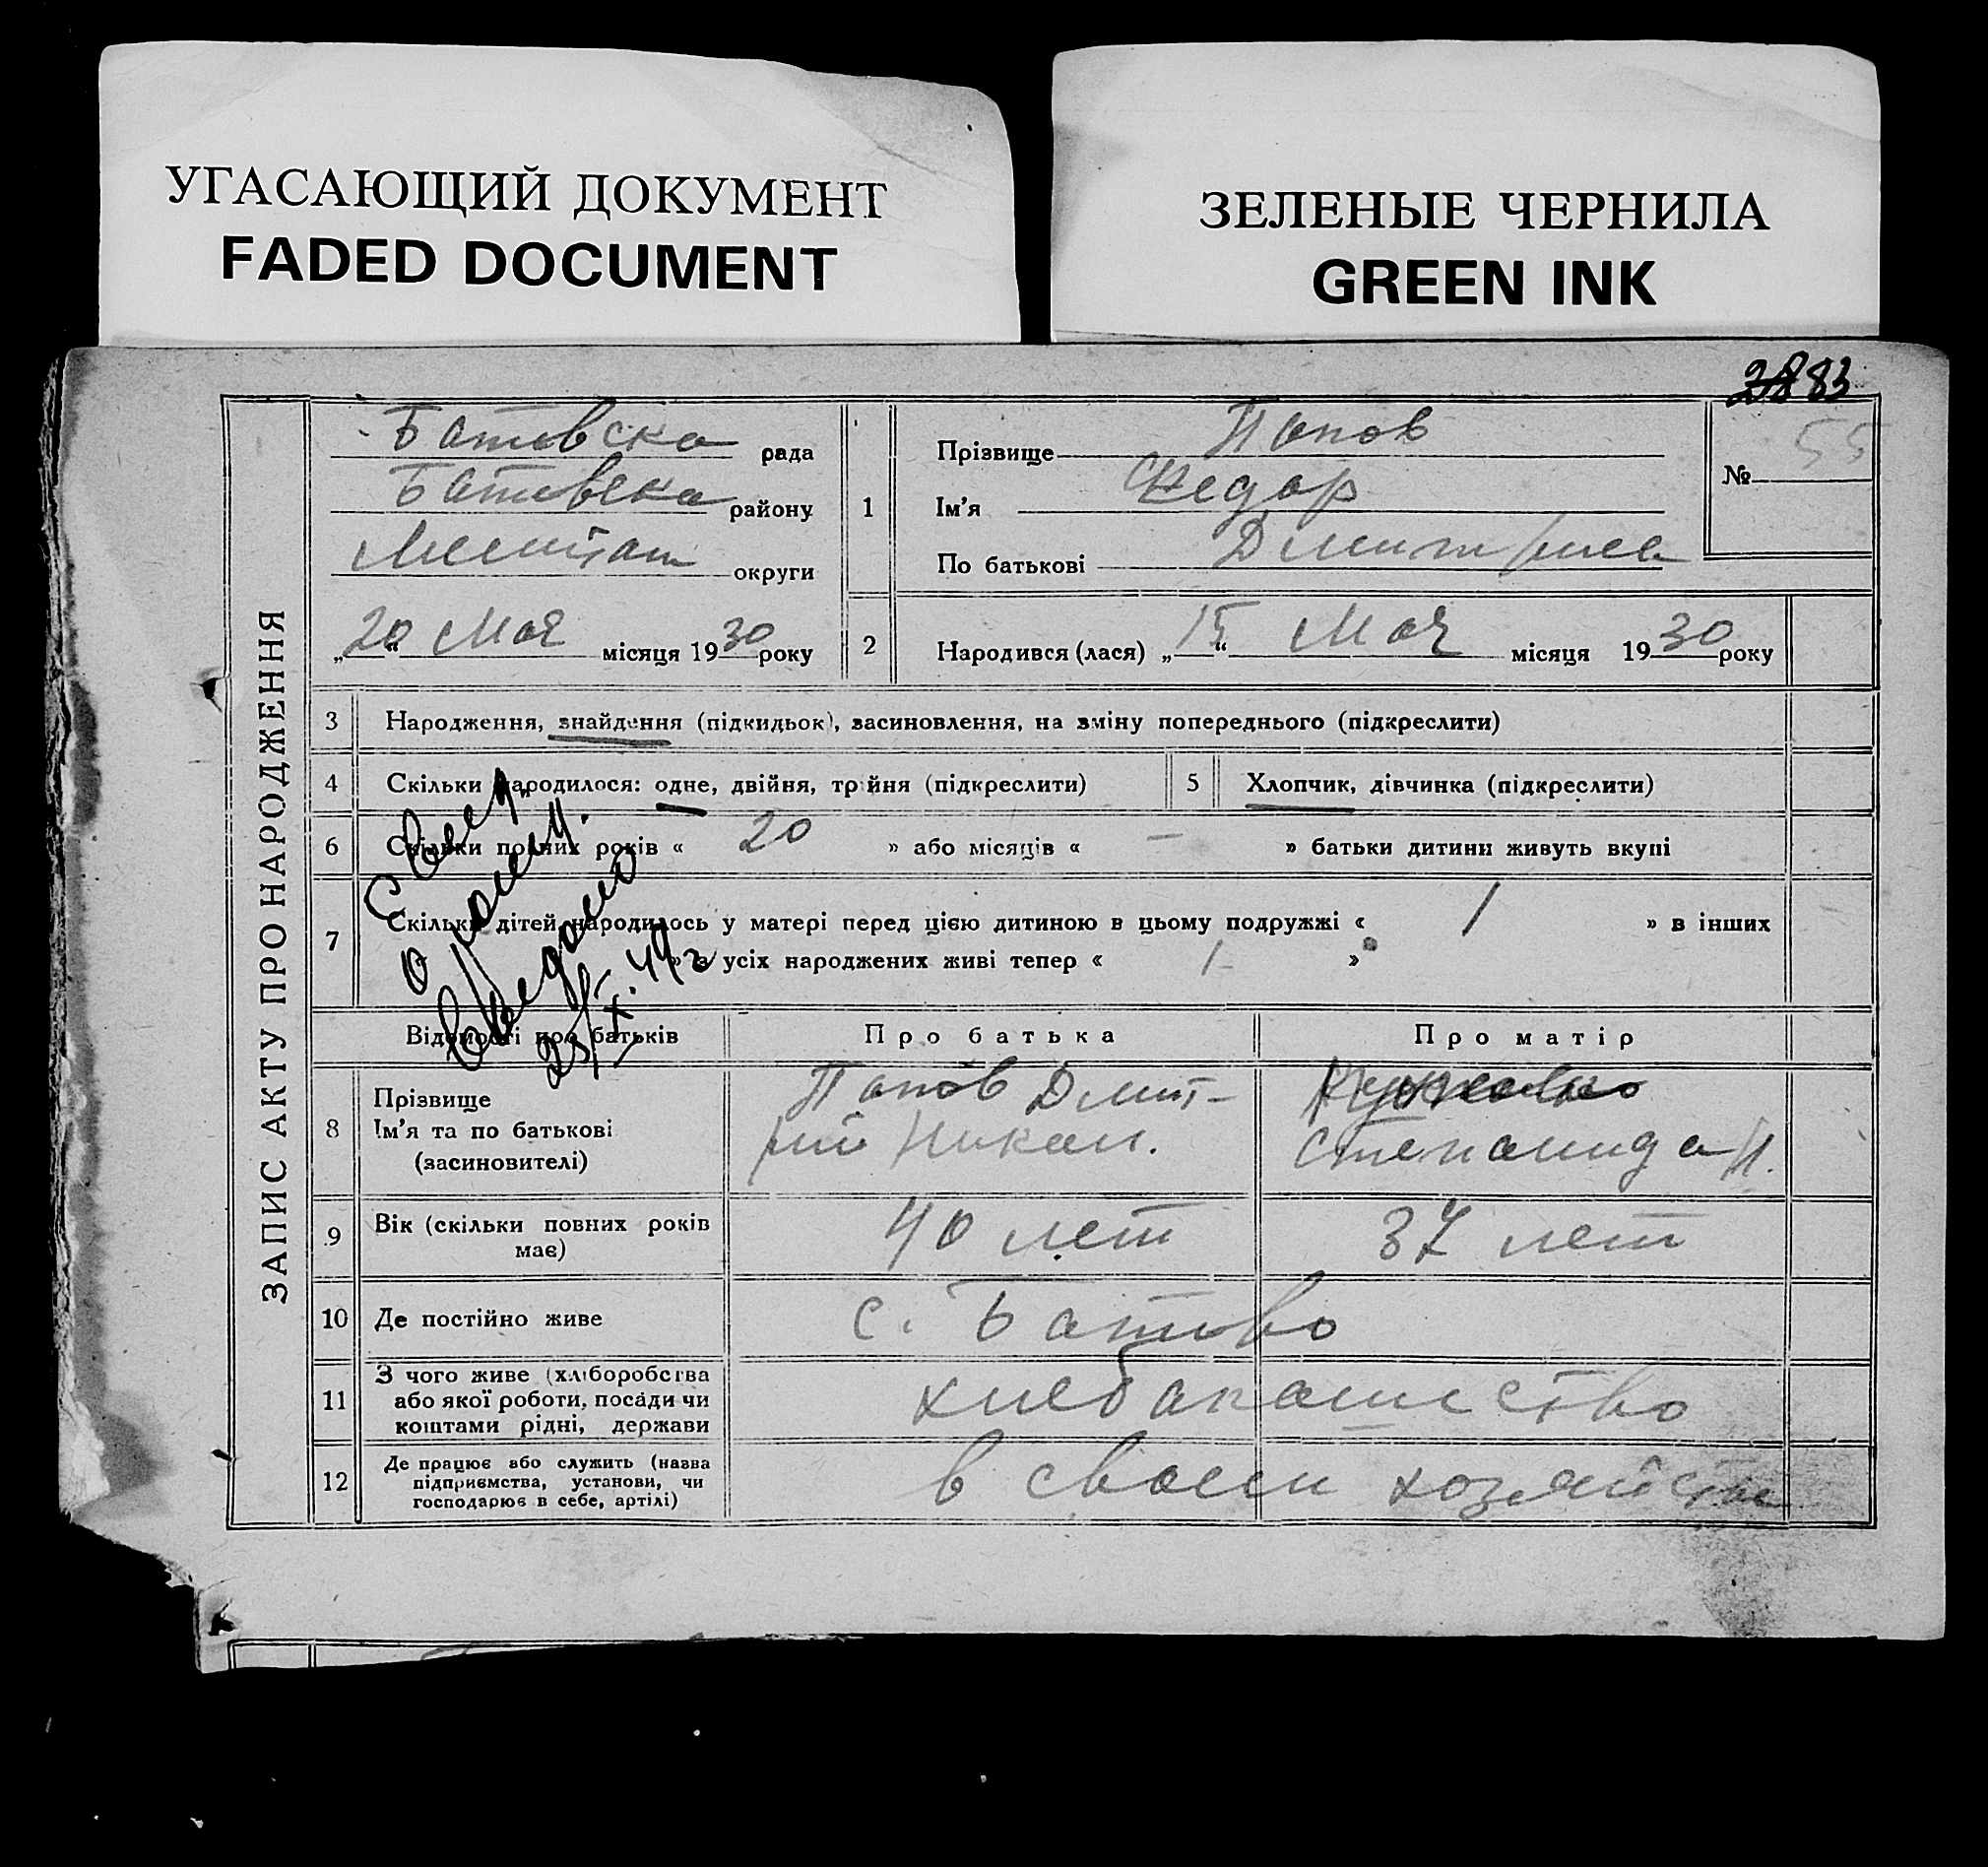 УГАСАЮЩИЙ ДОКУМЕНТ
FADED DOCUMENT
ЗЕЛЕНЫЕ ЧЕРНИЛА
GREEN INK
83
ЗАПИС АКТУ ПРО НАРОДЖЕННЯ
Батовска рада
района Батовска району
округи
„20“ Мая місяця 1930 року
1
Прізвище Попов
Ім'я Федор
По батькові Дмитриев
№ 55
2 Народився (лася) „15“ Мая місяця 1930 року
3 Народження, знайдення (підкидьок), засиновлення, на зміну попереднього (підкреслити)
4 Скільки народилося: одне, двійня, тройня (підкреслити)
5 Хлопчик, дівчинка (підкреслити)
6 Скільки повних років « 20 » або місяців « — » батьки дитини живуть вкупі
7 Скільки дітей народилось у матері перед цією дитиною в цьому подружжі « 1 » в інших
» а усіх народжених живі тепер « 1 »
25/X.49г
Відомості про батьків
Про батька
Про матір
8 Прізвище
Ім'я та по батькові
(засиновителі)
Попов Дмит-
рий Никан.
Степанида
9 Вік (скільки повних років
має)
40 лет
37 лет
10 Де постійно живе
с. Батово
11 З чого живе (хліборобства
або якої роботи, посади чи
коштами рідні, держави
хлебопашество
12 Де працює або служить (назва
підприємства, установи, чи
господарює в себе, артілі)
в своем хозяйстве